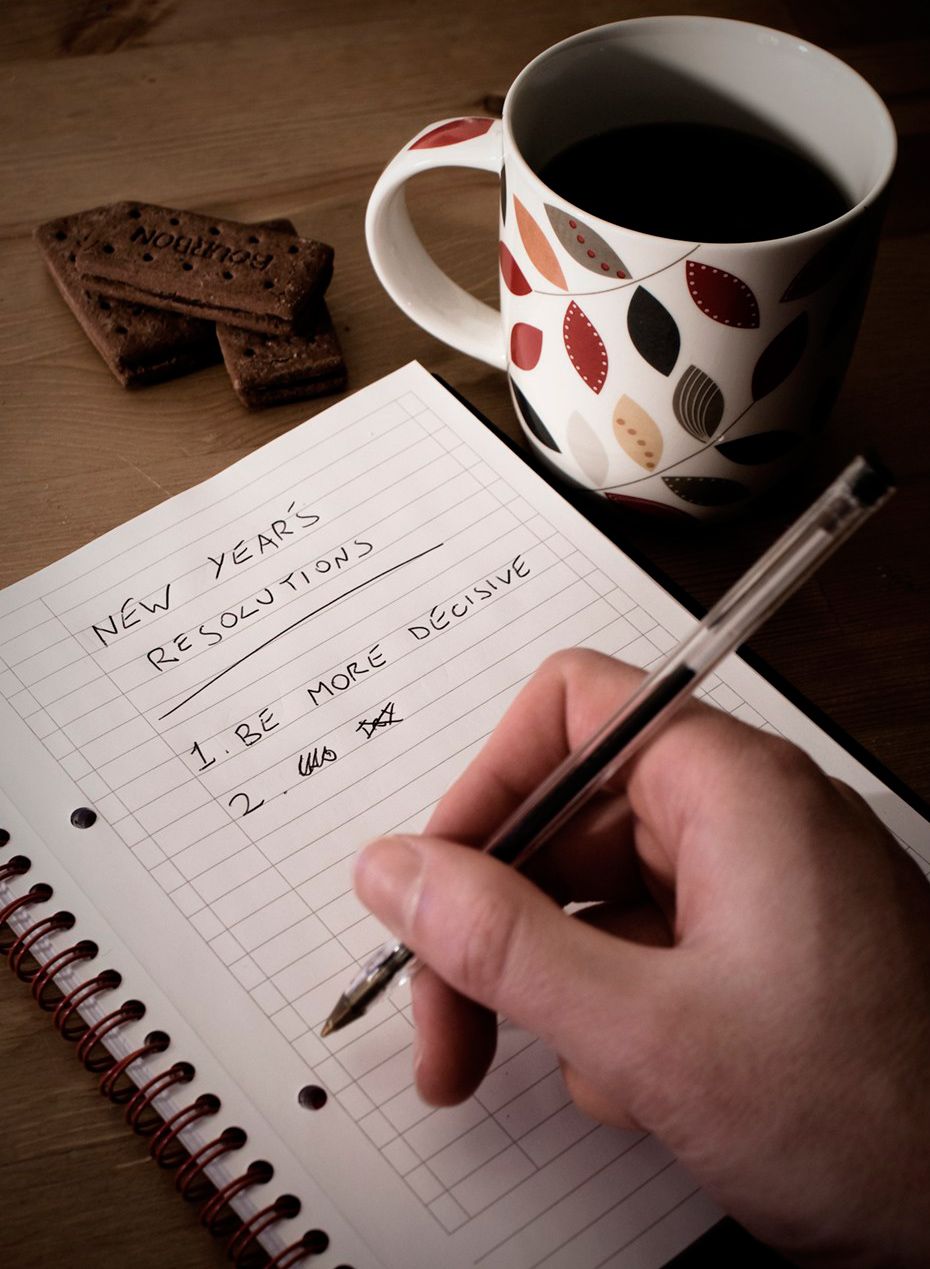 BOURBON
NEW YEAR'S
RESOLUTIONS
1. BE MORE DECISIVE
2.